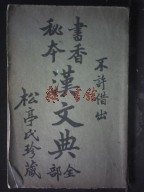 不許借出
書香
秘本
漢文典
全部
松亭氏珍藏